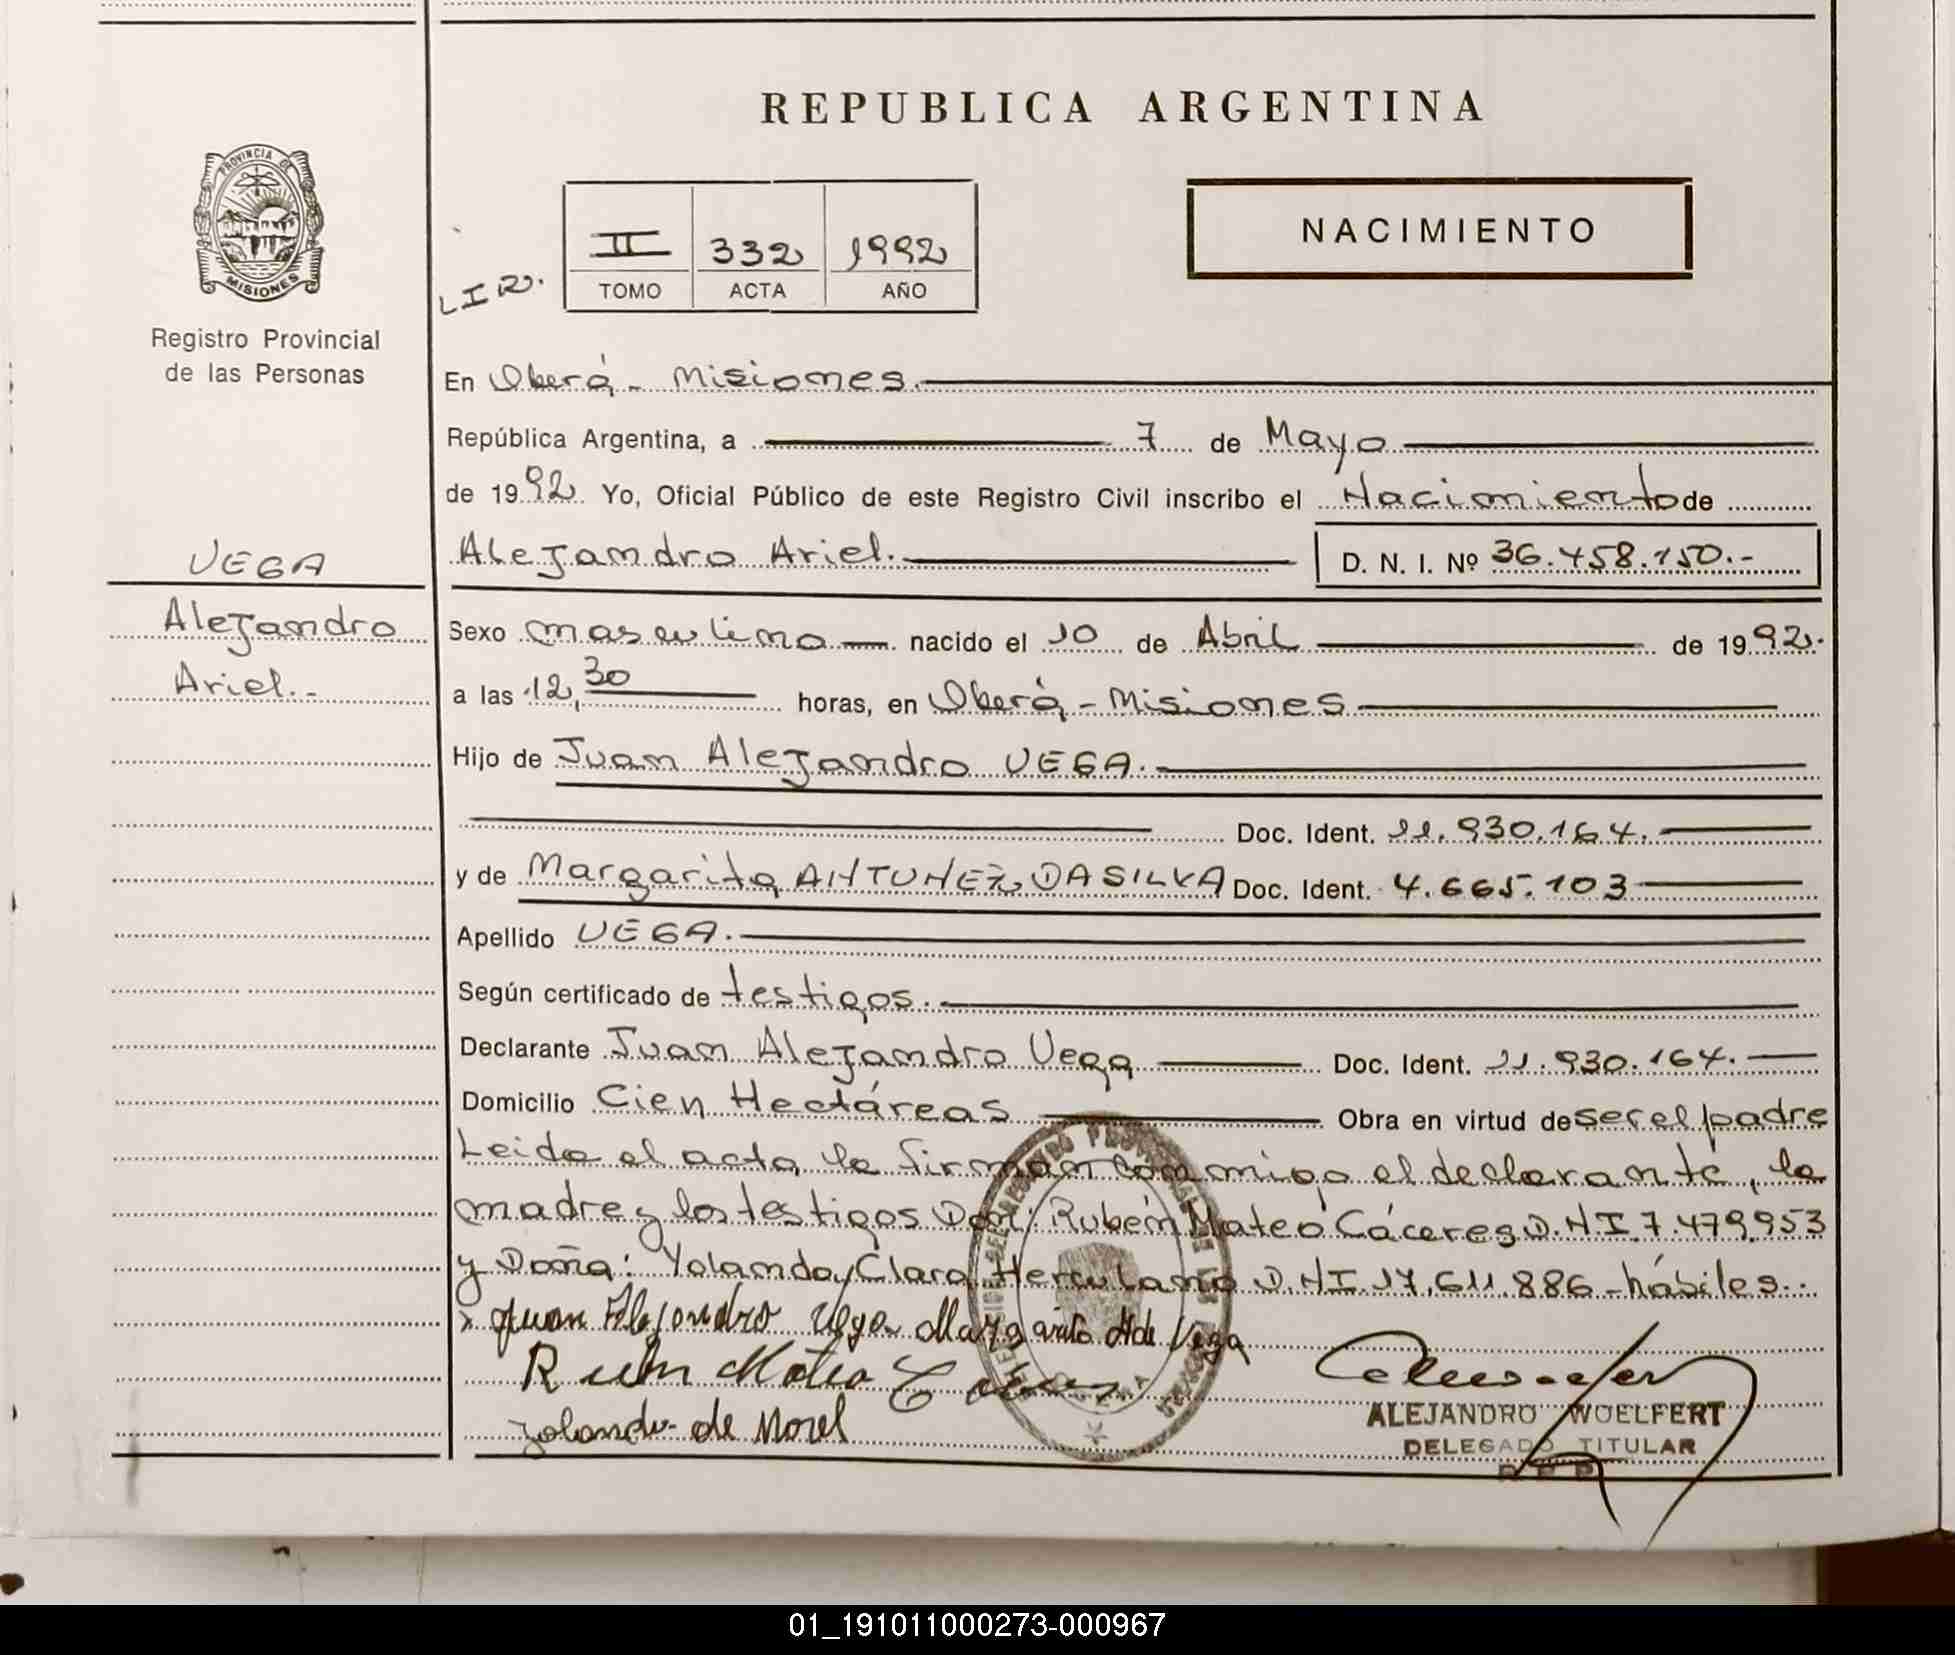 REPUBLICA ARGENTINA
PROVINCIA DE
MISIONES
Registro Provincial
de las Personas
NACIMIENTO
LIR.
II 332 1992
TOMO ACTA AÑO
En Oberá - Misiones.
República Argentina, a 7 de Mayo
de 1992. Yo, Oficial Público de este Registro Civil inscribo el Nacimiento de
VEGA
Alejandro Ariel. D. N. I. Nº 36.458.150.-
Alejandro
Ariel.-
Sexo masculino nacido el 10 de Abril de 1992.
a las 12,30 horas, en Oberá - Misiones
Hijo de Juan Alejandro VEGA.
Doc. Ident. 11.930.164.
y de Margarita ANTUNEZ DASILVA Doc. Ident. 4.665.103
Apellido VEGA.
Según certificado de testigos.
Declarante Juan Alejandro Vega Doc. Ident. 11.930.164.
Domicilio Cien Hectáreas Obra en virtud de ser el padre
Leida el acta, la firman conmigo el declarante, la
madre y los testigos Don: Rubén Mateo Cáceres D.N.I 7.479.953
y Doña: Yolanda Clara Herculano D.N.I. 17.611.886 - hábiles.
x Juan Alejandro Vega Margarita A de Vega
Rubén Mateo Caceres
Yolanda de Morel
ALEJANDRO WOELFERT
DELEGADO TITULAR
R P P
01_191011000273-000967